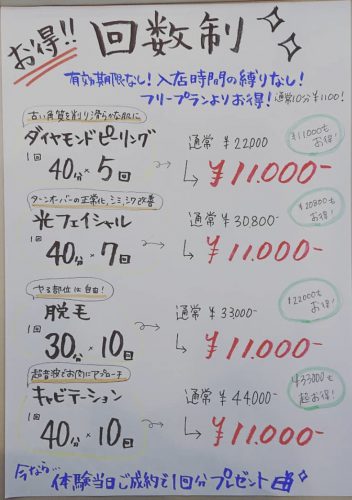 お得!! 回数制
有効期限なし!入店時間の縛りなし!
フリープランよりお得! 通常10分¥1100!
古い角質を削り滑らかな肌に
ダイヤモンドピーリング
1回 40分×5回
通常 ¥22000
→ ¥11.000-
¥11.000も お得!
ターンオーバーの正常化、シミ、シワ改善
光フェイシャル
1回 40分×7回
通常 ¥30800-
→ ¥11.000-
¥20800も お得!
やる部位は自由!
脱毛
1回 30分×10回
通常 ¥33000-
→ ¥11.000-
¥22000も お得!
超音波でお肉にアプローチ
キャビテーション
1回 40分×10回
通常 ¥44000-
→ ¥11.000-
¥33000も 超お得!
今なら…
体験当日ご成約で1回分プレゼント